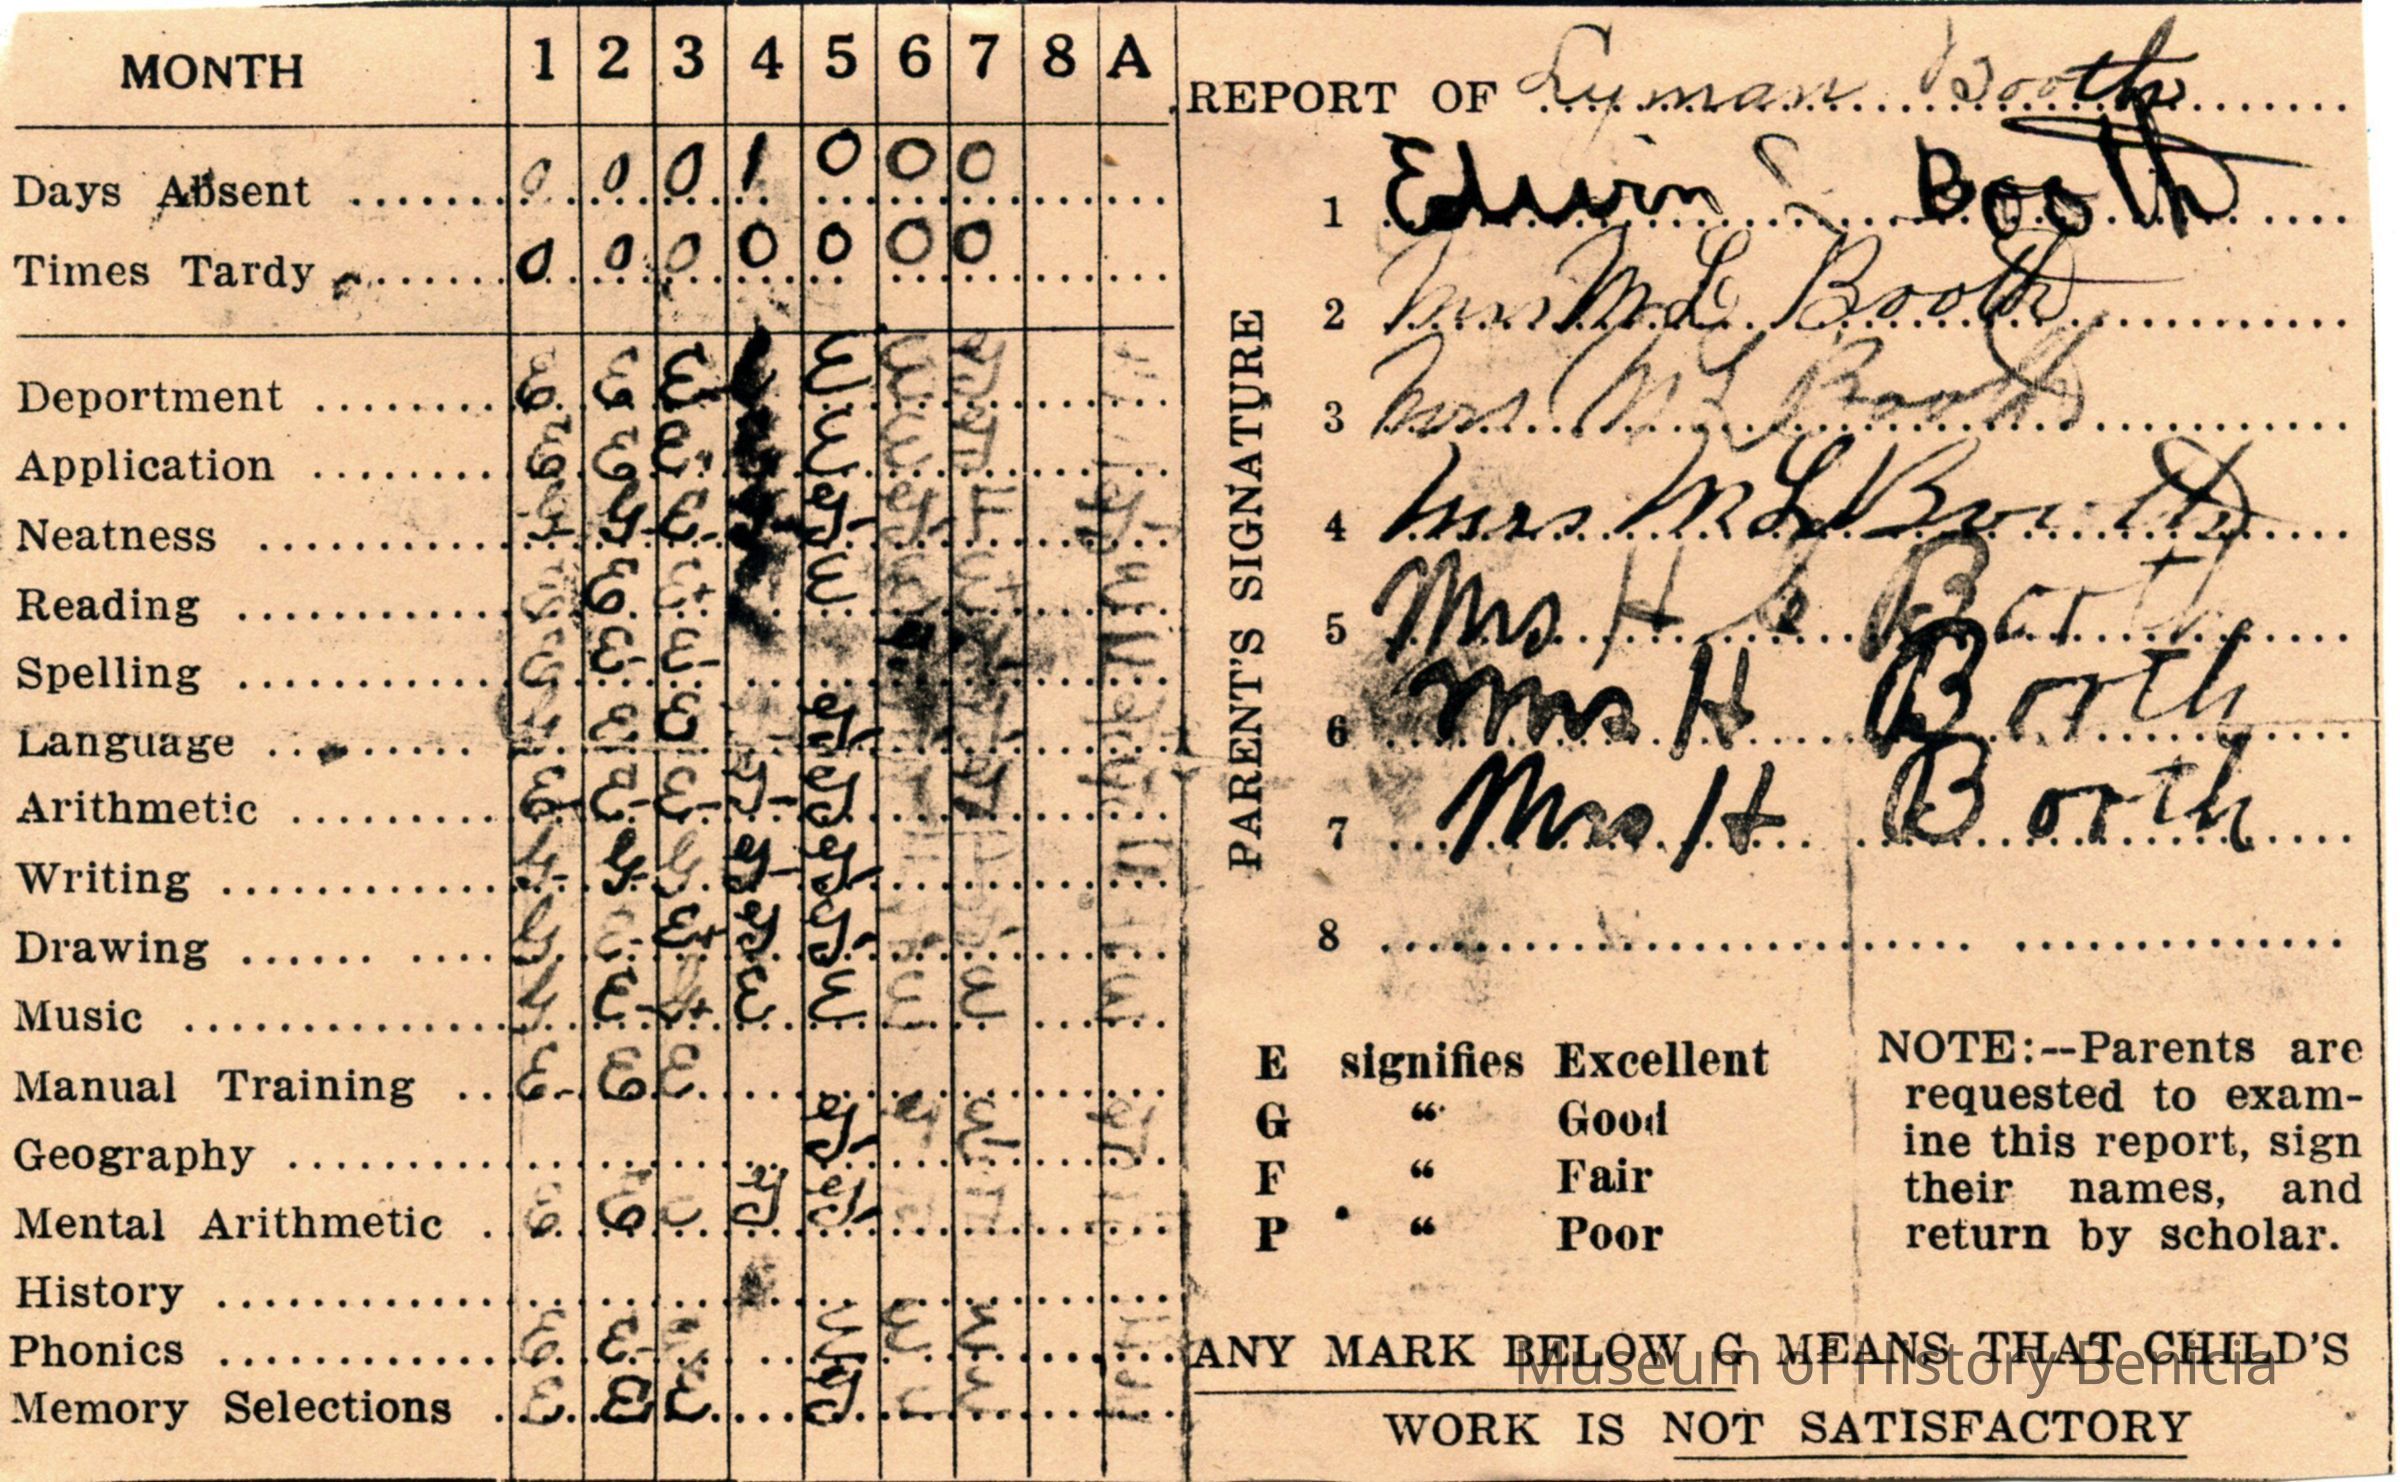 MONTH 1 2 3 4 5 6 7 8 A
Days Absent 0 0 0 1 0 0 0
Times Tardy 0 0 0 0 0 0 0
Deportment E E E- E E G
Application E E E E G
Neatness G- G- E- G- G- G- F
Reading E E E+ E
Spelling E E- E-
Language E E G-
Arithmetic E- E- E- G- G G
Writing G- G- G G- G-
Drawing G E- E+ G G-
Music G E- G+ E E E E
Manual Training E- E E
Geography G- G
Mental Arithmetic E E G G-
History
Phonics E E- E E E
Memory Selections E E E G
REPORT OF Lyman Booth
PARENT'S SIGNATURE
1 Edwin L Booth
2 Mrs M L Booth
3 Mrs M L Booth
4 Mrs M L Booth
5 Mrs H Booth
6 Mrs H Booth
7 Mrs H Booth
8
E signifies Excellent
G “ Good
F “ Fair
P “ Poor
NOTE:--Parents are
requested to exam-
ine this report, sign
their names, and
return by scholar.
ANY MARK BELOW G MEANS THAT CHILD'S
WORK IS NOT SATISFACTORY
Museum of History Benicia